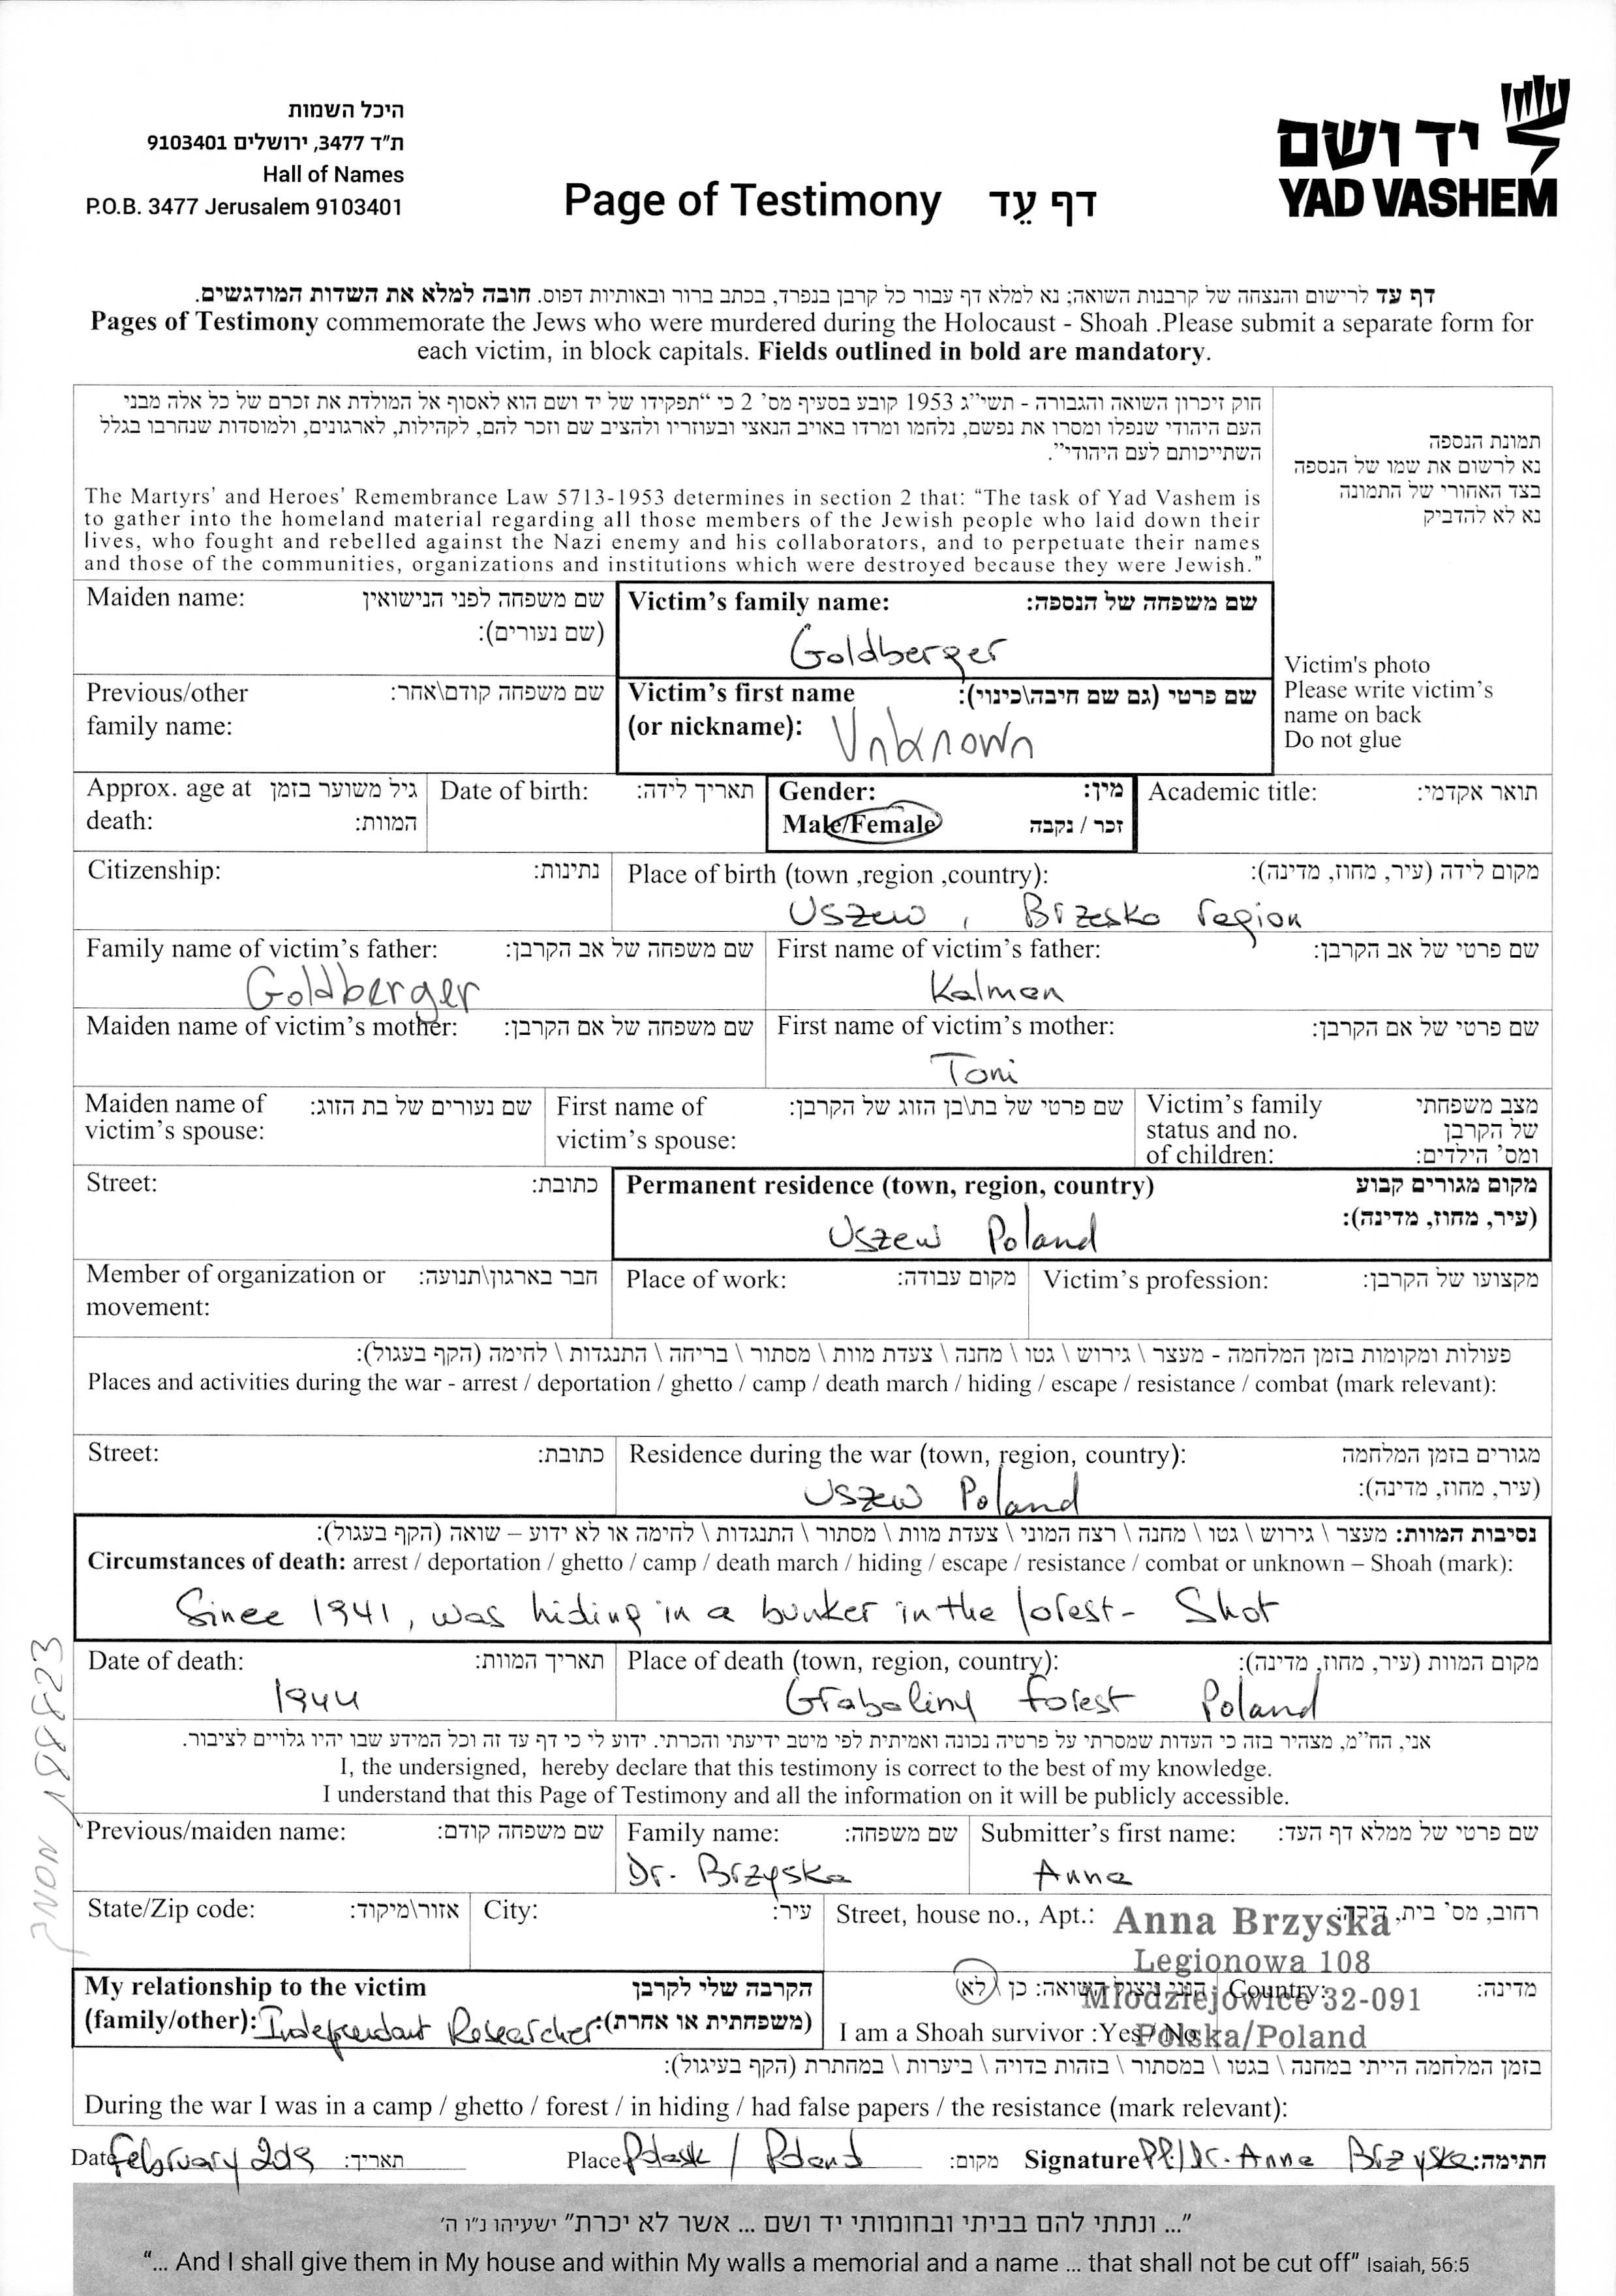 היכל השמות
ת"ד 3477, ירושלים 9103401
Hall of Names
P.O.B. 3477 Jerusalem 9103401
Page of Testimony דף עֵד
יד ושם
YAD VASHEM
דף עד לרישום והנצחה של קרבנות השואה; נא למלא דף עבור כל קרבן בנפרד, בכתב ברור ובאותיות דפוס. חובה למלא את השדות המודגשים.
Pages of Testimony commemorate the Jews who were murdered during the Holocaust - Shoah .Please submit a separate form for
each victim, in block capitals. Fields outlined in bold are mandatory.
חוק זיכרון השואה והגבורה - תשי"ג 1953 קובע בסעיף מס' 2 כי "תפקידו של יד ושם הוא לאסוף אל המולדת את זכרם של כל אלה מבני
העם היהודי שנפלו ומסרו את נפשם, נלחמו ומרדו באויב הנאצי ובעוזריו ולהציב שם וזכר להם, לקהילות, לארגונים, ולמוסדות שנחרבו בגלל
השתייכותם לעם היהודי".
The Martyrs' and Heroes' Remembrance Law 5713-1953 determines in section 2 that: "The task of Yad Vashem is
to gather into the homeland material regarding all those members of the Jewish people who laid down their
lives, who fought and rebelled against the Nazi enemy and his collaborators, and to perpetuate their names
and those of the communities, organizations and institutions which were destroyed because they were Jewish."
תמונת הנספה
נא לרשום את שמו של הנספה
בצד האחורי של התמונה
נא לא להדביק
Victim's photo
Please write victim's
name on back
Do not glue
Maiden name: שם משפחה לפני הנישואין
(שם נעורים):
Victim's family name: שם משפחה של הנספה:
Goldberger
Previous/other שם משפחה קודם\אחר:
family name:
Victim's first name שם פרטי (גם שם חיבה\כינוי):
(or nickname): Unknown
Approx. age at גיל משוער בזמן
death: המוות:
Date of birth: תאריך לידה:
Gender: מין:
Male/Female זכר / נקבה
Academic title: תואר אקדמי:
Citizenship: נתינות:
Place of birth (town ,region ,country): מקום לידה (עיר, מחוז, מדינה):
Uszew , Brzesko region
Family name of victim's father: שם משפחה של אב הקרבן:
Goldberger
First name of victim's father: שם פרטי של אב הקרבן:
Kalman
Maiden name of victim's mother: שם משפחה של אם הקרבן:
First name of victim's mother: שם פרטי של אם הקרבן:
Toni
Maiden name of שם נעורים של בת הזוג:
victim's spouse:
First name of שם פרטי של בת\בן הזוג של הקרבן:
victim's spouse:
Victim's family מצב משפחתי
status and no. של הקרבן
of children: ומס' הילדים:
Street: כתובת:
Permanent residence (town, region, country) מקום מגורים קבוע
(עיר, מחוז, מדינה):
Uszew Poland
Member of organization or חבר בארגון\תנועה:
movement:
Place of work: מקום עבודה:
Victim's profession: מקצועו של הקרבן:
פעולות ומקומות בזמן המלחמה - מעצר \ גירוש \ גטו \ מחנה \ צעדת מוות \ מסתור \ בריחה \ התנגדות \ לחימה (הקף בעגול):
Places and activities during the war - arrest / deportation / ghetto / camp / death march / hiding / escape / resistance / combat (mark relevant):
Street: כתובת:
Residence during the war (town, region, country): מגורים בזמן המלחמה
(עיר, מחוז, מדינה):
Uszew Poland
נסיבות המוות: מעצר \ גירוש \ גטו \ מחנה \ רצח המוני \ צעדת מוות \ מסתור \ התנגדות \ לחימה או לא ידוע – שואה (הקף בעגול):
Circumstances of death: arrest / deportation / ghetto / camp / death march / hiding / escape / resistance / combat or unknown – Shoah (mark):
Since 1941, was hiding in a bunker in the forest- Shot
Date of death: תאריך המוות:
1944
Place of death (town, region, country): מקום המוות (עיר, מחוז, מדינה):
Grabaliny forest Poland
אני, הח"מ, מצהיר בזה כי העדות שמסרתי על פרטיה נכונה ואמיתית לפי מיטב ידיעתי והכרתי. ידוע לי כי דף עד זה וכל המידע שבו יהיו גלויים לציבור.
I, the undersigned, hereby declare that this testimony is correct to the best of my knowledge.
I understand that this Page of Testimony and all the information on it will be publicly accessible.
Previous/maiden name: שם משפחה קודם:
Family name: שם משפחה:
Dr. Brzyska
Submitter's first name: שם פרטי של ממלא דף העד:
Anna
State/Zip code: אזור\מיקוד:
City: עיר:
Street, house no., Apt.: רחוב, מס' בית, דירה:
Anna Brzyska
Legionowa 108
Młodziejowice 32-091
Polska/Poland
My relationship to the victim הקרבה שלי לקרבן
(family/other): Independant Researcher (משפחתית או אחרת):
הנני ניצול השואה: כן \ לא
I am a Shoah survivor :Yes / No
Country: מדינה:
בזמן המלחמה הייתי במחנה \ בגטו \ במסתור \ בזהות בדויה \ ביערות \ במחתרת (הקף בעיגול):
During the war I was in a camp / ghetto / forest / in hiding / had false papers / the resistance (mark relevant):
Date February 2019 תאריך:
Place / Poland מקום:
Signature PP/Dr. Anna Brzyska חתימה:
"... ונתתי להם בביתי ובחומותי יד ושם ... אשר לא יכרת" ישעיהו נ"ו ה'
"... And I shall give them in My house and within My walls a memorial and a name ... that shall not be cut off" Isaiah, 56:5
188823